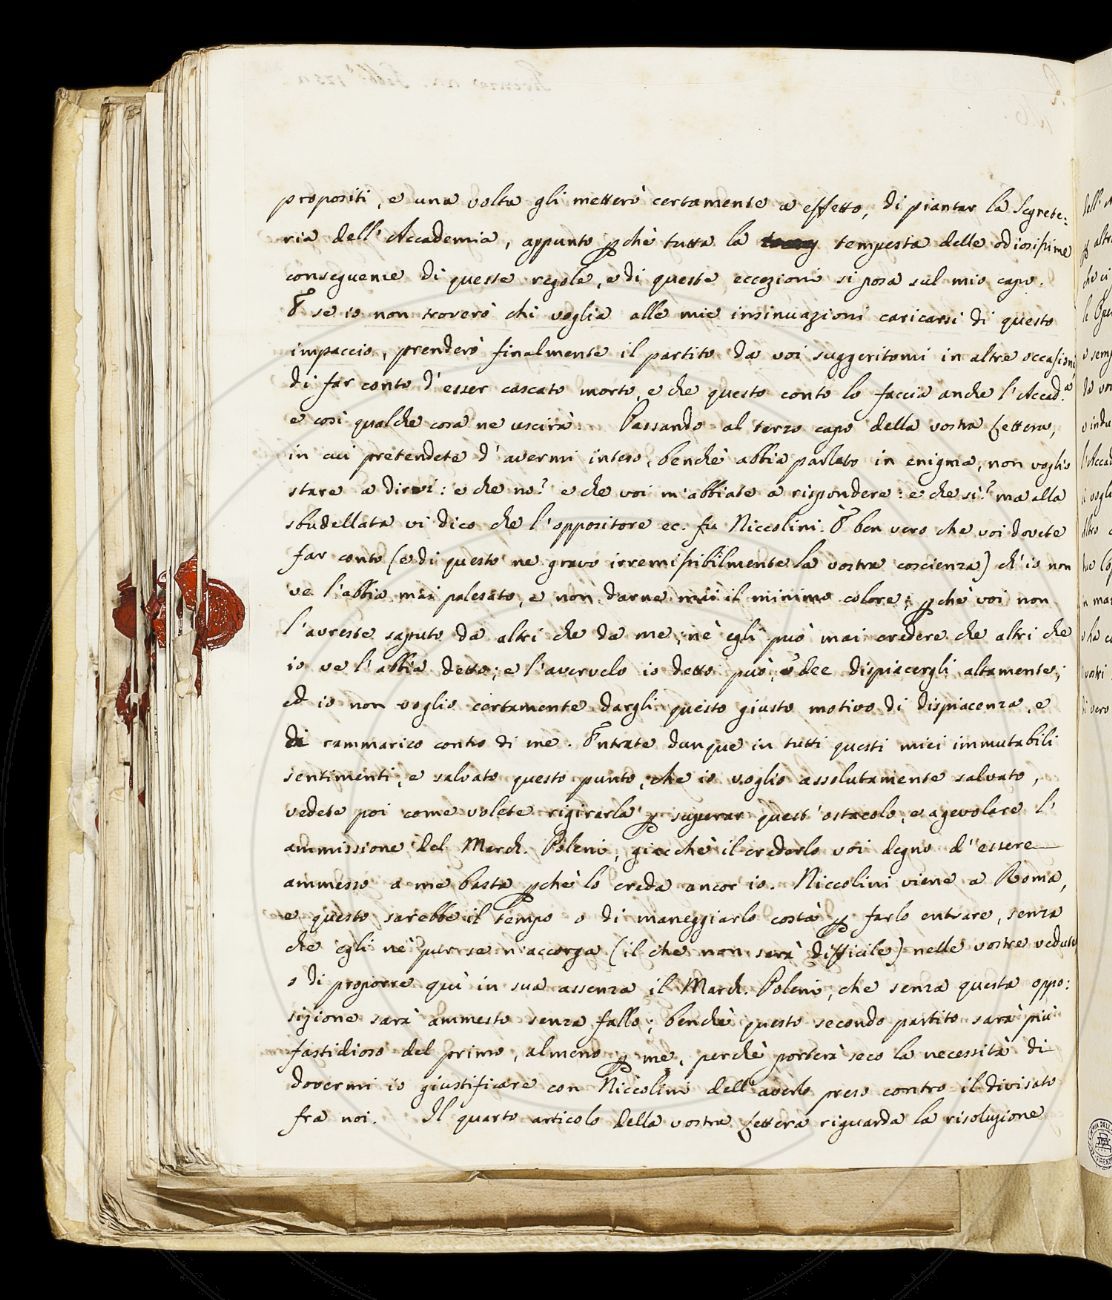 propositi, e una volta gli metterò certamente a effetto, di piantar la Segrete:
ria dell'Accademia, appunto pchè tutta la tempesta delle odiosissime
conseguenze di queste regole, e di queste eccezioni si posa sul mio capo.
E se io non troverò chi voglia alle mie insinuazioni caricarsi di questo
impaccio, prenderò finalmente il partito da voi suggeritomi in altre occasioni
di far conto d'esser cascato morto, e che questo conto lo faccia anche l'Accad.a
e così qualche cosa ne uscirà. Passando al terzo capo della vostra Lettera,
in cui pretendete d'avermi inteso, benchè abbia parlato in enigma, non voglio
stare a dirvi: e che no? e che voi m'abbiate a rispondere: e che sì? ma alla
sbudellata vi dico che l'oppositore ec. fu Niccolini. È ben vero che voi dovete
far conto (e di questo ne gravo irremissibilmente la vostra coscienza) ch'io non
ve l'abbia mai palesato, e non darne mai il minimo colore; pchè voi non
l'avreste saputo da altri che da me; nè egli può mai credere che altri che
io ve l'abbia detto; e l'avervelo io detto può, e dee dispiacergli altamente;
ed io non voglio certamente dargli questo giusto motivo di dispiacenza, e
di rammarico contro di me. Entrate dunque in tutti questi miei immutabili
sentimenti; e salvato questo punto, che io voglio assolutamente salvato,
vedete poi come volete rigirarla p superar quest'ostacolo, e agevolare l'
ammissione del March. Poleni, giacchè il crederlo voi degno d'essere
ammesso a me basta pchè lo creda ancor io. Niccolini viene a Roma,
e questo sarebbe il tempo o di maneggiarlo costà p farlo entrare, senza
che egli nè pur se n'accorga (il che non sarà difficile) nelle vostre vedute
o di proporre quì in sua assenza il March. Poleni, che senza questa oppo:
sizione sarà ammesso senza fallo; benchè questo secondo partito sarà più
fastidioso del primo, almeno p me, perchè porterà seco la necessità di
dovermi io giustificare con Niccolini dell'averlo preso contro il divisato
fra noi. Il quarto articolo della vostra Lettera riguarda la risoluzione